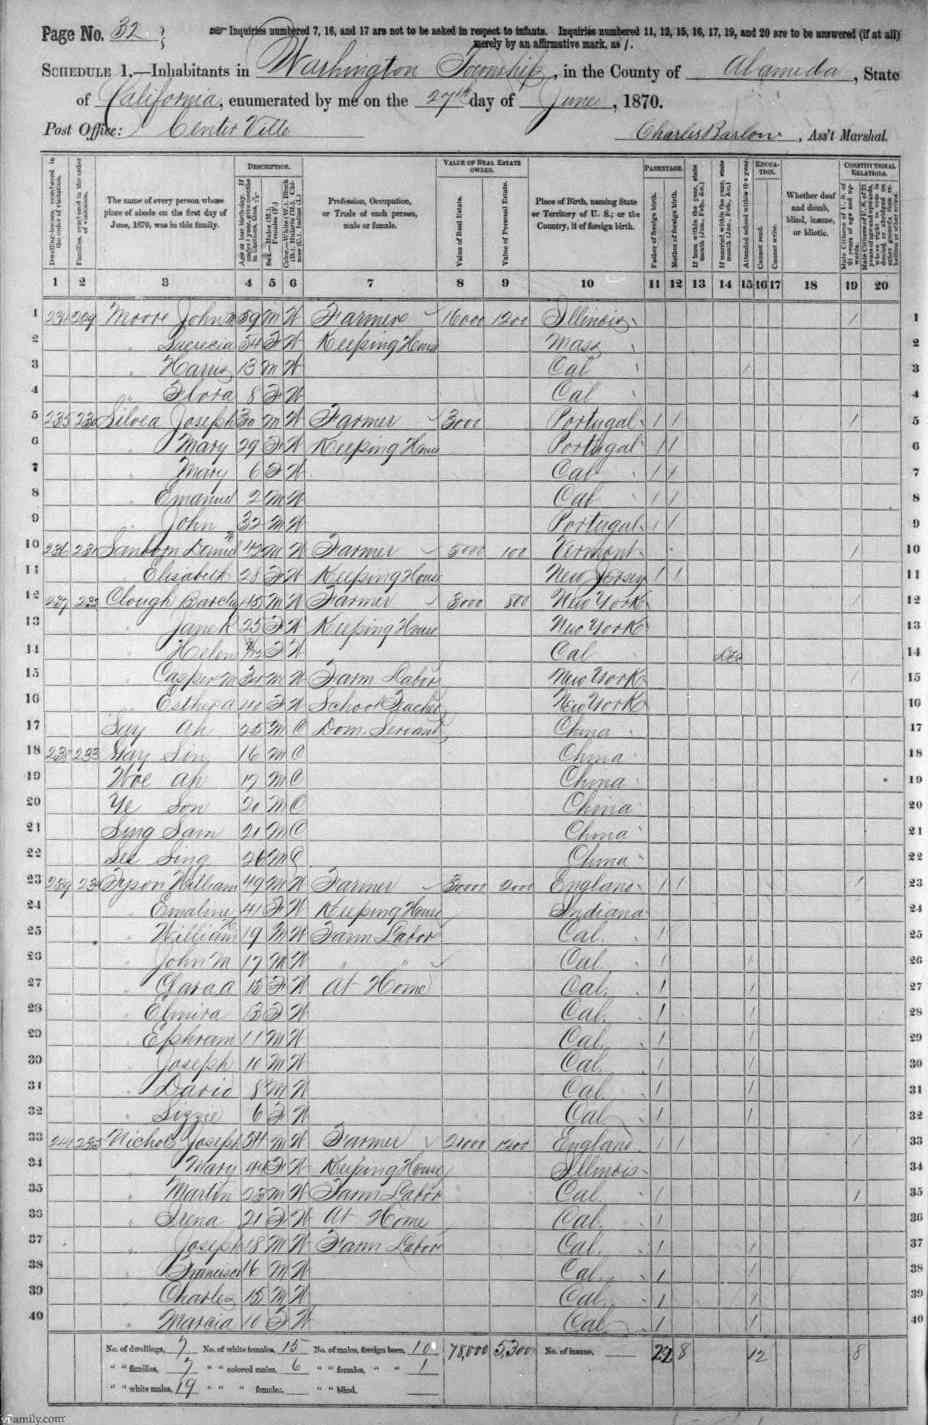 Page No. 32
Inquiries numbered 7, 16, and 17 are not to be asked in respect to infants. Inquiries numbered 11, 12, 15, 16, 17, 19, and 20 are to be answered (if at all)
merely by an affirmative mark, as /.
SCHEDULE 1.—Inhabitants in Washington Township, in the County of Alameda, State
of California, enumerated by me on the 27th day of June, 1870.
Post Office: Center Ville Charles Barlow, Ass't Marshal.
DESCRIPTION. VALUE OF REAL ESTATE OWNED. PARENTAGE. EDUCATION. CONSTITUTIONAL RELATIONS.
Dwelling-houses, numbered in the order of visitation.
Families, numbered in the order of visitation.
The name of every person whose place of abode on the first day of June, 1870, was in this family.
Profession, Occupation, or Trade of each person, male or female.
Value of Real Estate.
Value of Personal Estate.
Place of Birth, naming State or Territory of U. S.; or the Country, if of foreign birth.
Father of foreign birth.
Mother of foreign birth.
Attended school within the year.
Cannot read.
Cannot write.
Whether deaf and dumb, blind, insane, or idiotic.
1 2 3 4 5 6 7 8 9 10 11 12 13 14 15 16 17 18 19 20
1 229 Moore John 59 M W Farmer 16000 1200 Illinois 1 1
2 Lucretia 34 F W Keeping House Mass 2
3 Harry 13 M W Cal 3
4 Flora 8 F W Cal 4
5 235 230 Silvea Joseph 30 M W Farmer 3000 Portugal 1 1 1 5
6 Mary 29 F W Keeping House Portugal 1 1 6
7 Mary 6 F W Cal 1 1 7
8 Emanuel 2 M W Cal 1 1 8
9 John 32 M W Portugal 1 1 9
10 236 231 Sanborn Daniel 42 M W Farmer 5000 100 Vermont 1 10
11 Elisabeth 28 F W Keeping House New Jersey 1 1 11
12 237 232 Clough Barclay 45 M W Farmer 3000 800 New York 1 12
13 Jane K 25 F W Keeping House New York 13
14 Helen F W Cal Dec 14
15 Casper M M W Farm Labor New York 1 15
16 Esther a 40 F W School Teacher New York 16
17 Say Ah 25 M C Dom. Servant China 17
18 238 233 Way Sin 16 M C China 18
19 Woe Ah 17 M C China 19
20 Ye Son 20 M C China 20
21 Sing Sam 21 M C China 21
22 See Sing 26 M C China 22
23 239 234 Tyson William 49 M W Farmer 2000 England 1 1 1 23
24 Emaline 41 F W Keeping House Indiana 24
25 William 19 M W Farm Labor Cal. 1 25
26 John M 17 M W " " Cal. 1 1 26
27 Clara a 15 F W At Home Cal. 1 1 27
28 Elmira 13 F W Cal. 1 1 28
29 Ephram 11 M W Cal. 1 1 29
30 Joseph 10 M W Cal. 1 1 30
31 David 8 M W Cal. 1 1 31
32 Lizzie 6 F W Cal. 1 1 32
33 235 Nichols Joseph 54 M W Farmer 1200 England 1 1 1 33
34 Mary 44 F W Keeping House Illinois 34
35 Martin 23 M W Farm Labor Cal. 1 1 35
36 Irena 21 F W At Home Cal. 1 36
37 Joseph 18 M W Farm Labor Cal. 1 1 37
38 Francisco 16 M W Cal. 1 1 38
39 Charles 15 M W Cal. 1 1 39
40 Marcia 10 F W Cal. 1 1 40
No. of dwellings, 7 No. of white females, 15 No. of males, foreign born, 10 78,000 5,300 No. of insane, 22 8 12 8
" " families, 7 " " colored males, 6 " " females, " " 1
" " white males, 19 " " " females, " " blind.
Family.com